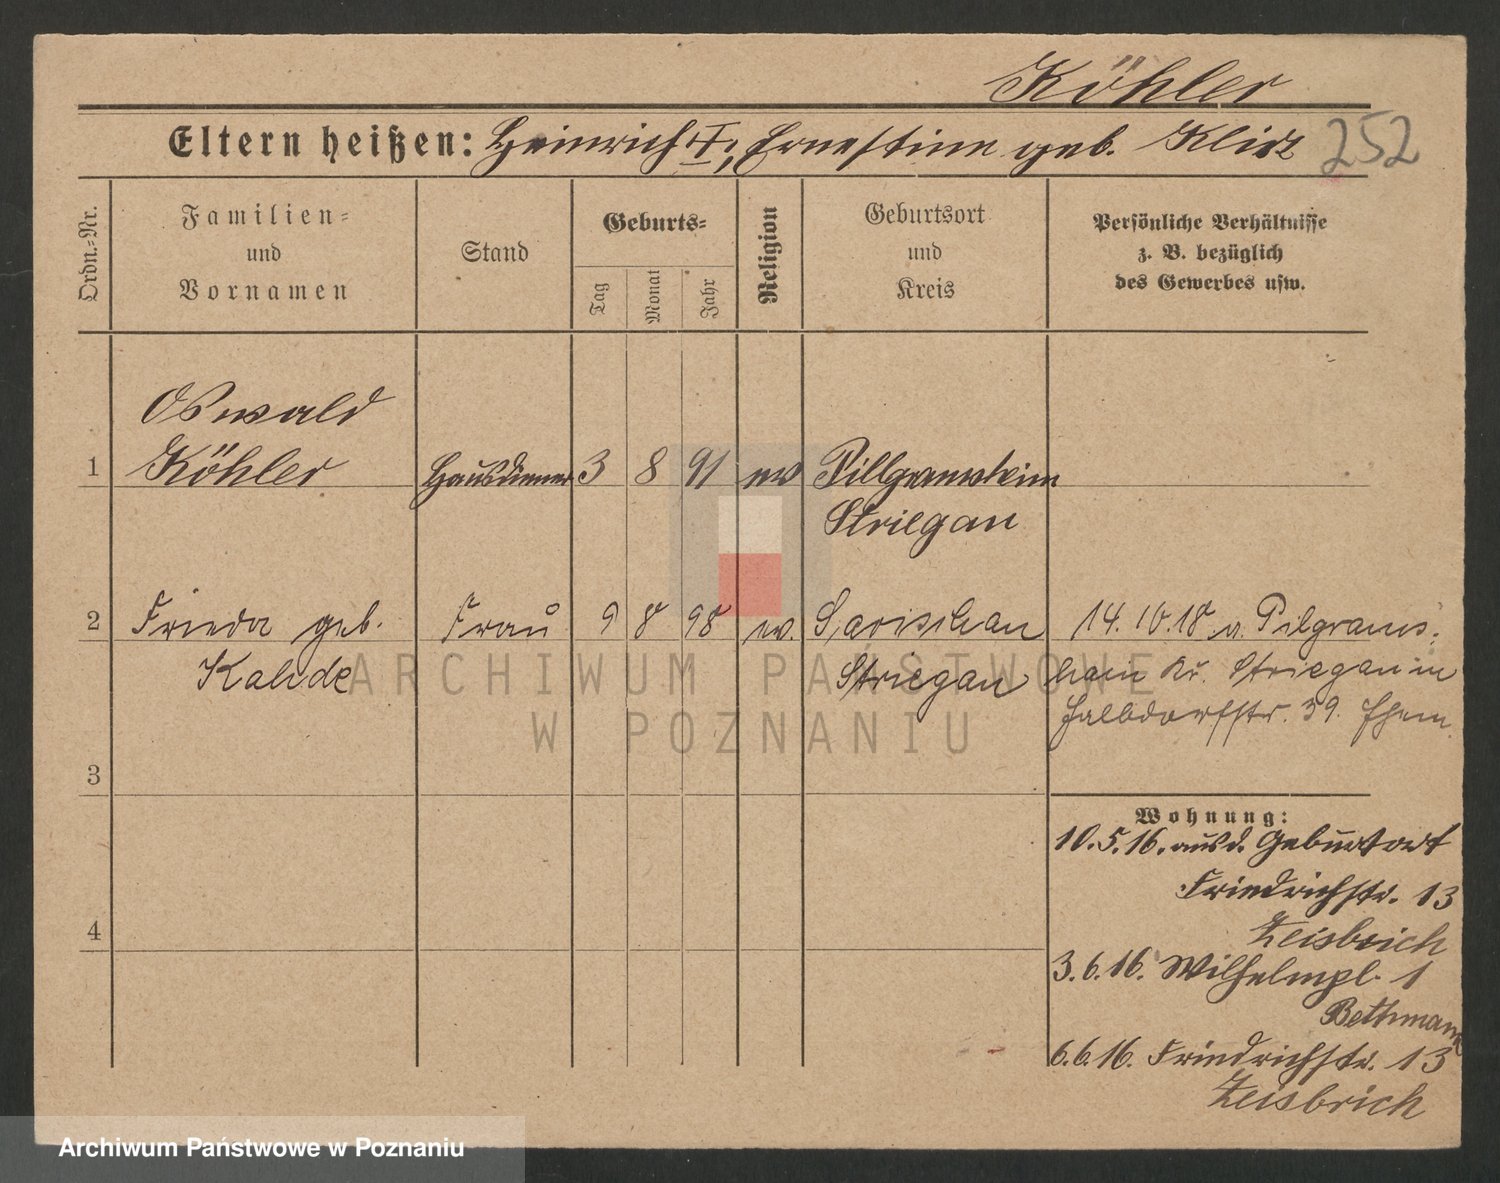 Köhler
Eltern heißen: Heinrich I, Ernestine geb. 252
Ordn.=Nr.
Familien=
und
Vornamen
Stand
Geburts=
Tag
Monat
Jahr
Religion
Geburtsort
und
Kreis
Persönliche Verhältnisse
z. B. bezüglich
des Gewerbes usw.
Oswald
1 Köhler Hausdiener 3 8 91 ev
Striegau
2 Frieda geb. Frau 9 8 98 ev. 14.10.18 n. Pilgrams=
Striegau hain Kr. Striegau in
39.
3
Wohnung:
10.5.16. aus d. Geburtsort
Friedrichstr. 13
Zeisbrich
4
3.6.16. Wilhelmpl. 1
Bethmann
6.6.16. Friedrichstr. 13
Zeisbrich
ARCHIWUM PAŃSTWOWE
W POZNANIU
Archiwum Państwowe w Poznaniu